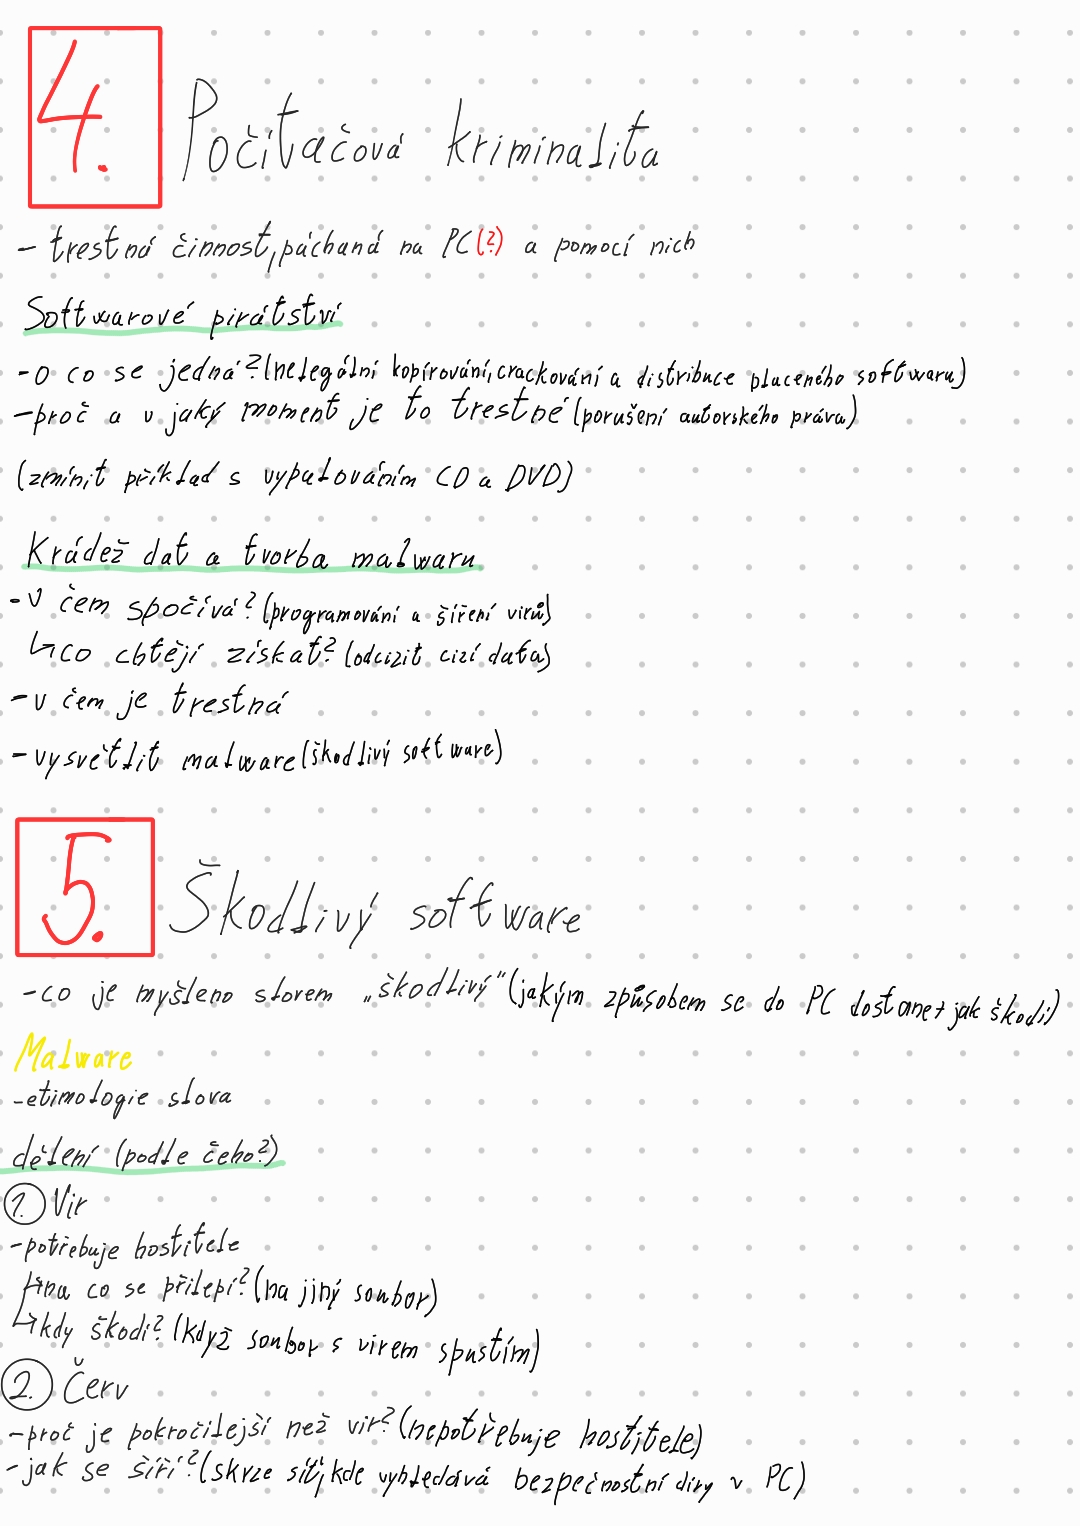 4. Počítačová kriminalita
- trestná činnost, páchaná na PC(?) a pomocí nich
Softwarové pirátství
- o co se jedná? (nelegální kopírování, crackování a distribuce placeného softwaru)
- proč a v jaký moment je to trestné (porušení autorského práva)
(zmínit příklad s vypalováním CD a DVD)
Krádež dat a tvorba malwaru
- v čem spočívá? (programování a šíření virů)
↳ co chtějí získat? (odcizit cizí data)
- v čem je trestná
- vysvětlit malware (škodlivý software)
5. Škodlivý software
- co je myšleno slovem „škodlivý" (jakým způsobem se do PC dostane + jak škodí)
Malware
- etimologie slova
dělení (podle čeho?)
1. Vir
- potřebuje hostitele
↳ na co se přilepí? (na jiný soubor)
↳ kdy škodí? (když soubor s virem spustím)
2. Červ
- proč je pokročilejší než vir? (nepotřebuje hostitele)
- jak se šíří? (skrze síť, kde vyhledává bezpečnostní díry v PC)